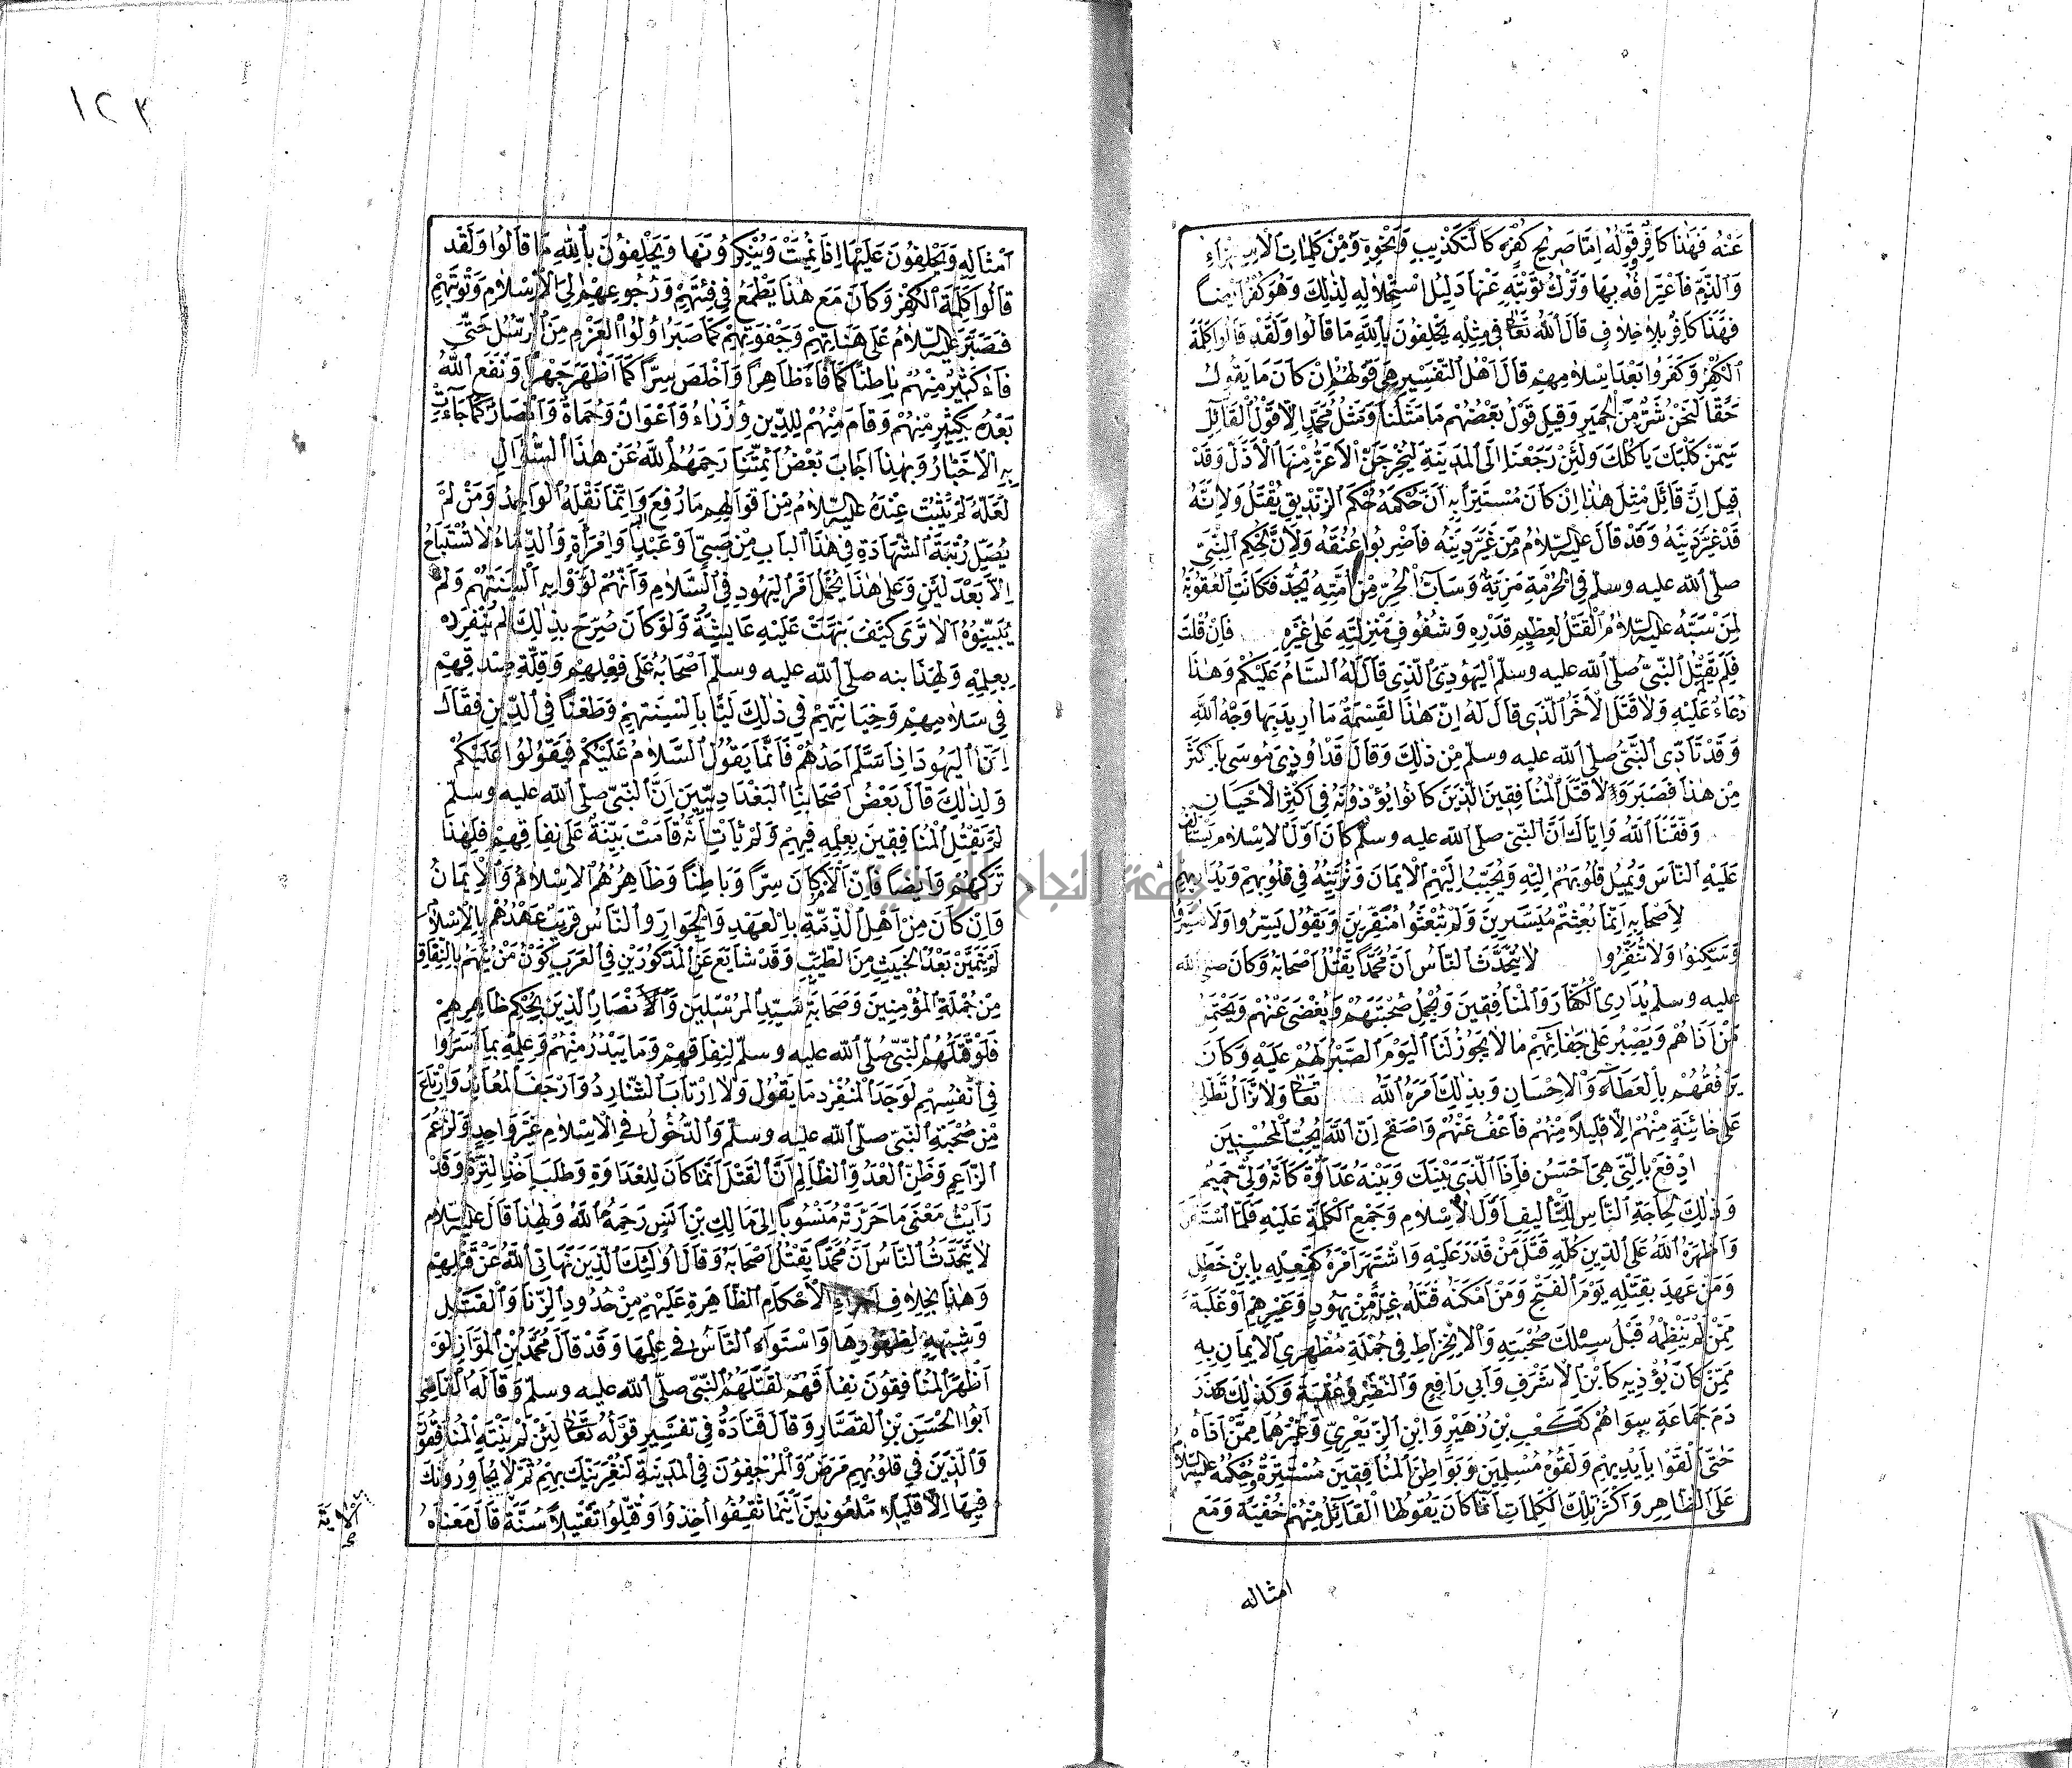 عَنْهُ فَهٰذَا كَافِرٌ قَوْلُهُ اِمَّا صَرِيحُ كُفْرِهِ كَالتَّكْذِيبِ وَنَحْوِهِ وَمِنْ كَلِمَاتِ الْاِسْتِهْزَاءِ
وَالذَّمِّ فَاعْتِرَافُهُ بِهَا وَتَرْكُ تَوْبَتِهِ عَنْهَا دَلِيلُ اسْتِحْلَالِهِ لِذٰلِكَ وَهُوَ كُفْرٌ اَيْضًا
فَهٰذَا كَافِرٌ بِلَا خِلَافٍ قَالَ اللّٰهُ تَعَالٰى فِي مِثْلِهِ يَحْلِفُونَ بِاللّٰهِ مَا قَالُوا وَلَقَدْ قَالُوا كَلِمَةَ
الْكُفْرِ وَكَفَرُوا بَعْدَ اِسْلَامِهِمْ قَالَ اَهْلُ التَّفْسِيرِ هِيَ قَوْلُهُمْ اِنْ كَانَ مَا يَقُولُ
حَقًّا لَنَحْنُ شَرٌّ مِنَ الْحَمِيرِ وَقِيلَ قَوْلُ بَعْضِهِمْ مَا مَثَلُنَا وَمَثَلُ مُحَمَّدٍ اِلَّا قَوْلُ الْقَائِلِ
سَمِّنْ كَلْبَكَ يَأْكُلْكَ وَلَئِنْ رَجَعْنَا اِلَى الْمَدِينَةِ لَيُخْرِجَنَّ الْاَعَزُّ مِنْهَا الْاَذَلَّ وَقَدْ
قِيلَ اِنَّ قَائِلَ مِثْلِ هٰذَا اِنْ كَانَ مُسْتَتِرًا بِهِ اَنَّ حُكْمَهُ حُكْمُ الزِّنْدِيقِ يُقْتَلُ وَلِاَنَّهُ
قَدْ غَيَّرَ دِينَهُ وَقَدْ قَالَ عليه السلام مَنْ غَيَّرَ دِينَهُ فَاضْرِبُوا عُنُقَهُ وَلِاَنَّ لِحُكْمِ النَّبِيِّ
صلى الله عليه وسلم فِي الْحُرْمَةِ مَزِيَّةً وَسَابُّ الْحُرِّ مِنْ اُمَّتِهِ يُحَدُّ فَكَانَتِ الْعُقُوبَةُ
لِمَنْ سَبَّهُ عليه السلام الْقَتْلَ لِعَظِيمِ قَدْرِهِ وَشُفُوفِ مَنْزِلَتِهِ عَلَى غَيْرِهِ فَاِنْ قُلْتَ
فَلِمَ لَمْ يَقْتُلِ النَّبِيُّ صلى الله عليه وسلم الْيَهُودِيَّ الَّذِي قَالَ لَهُ السَّامُ عَلَيْكُمْ وَهٰذَا
دُعَاءٌ عَلَيْهِ وَلَا قَتَلَ الْاٰخَرَ الَّذِي قَالَ لَهُ اِنَّ هٰذَا لَقِسْمَةٌ مَا اُرِيدَ بِهَا وَجْهُ اللّٰهِ
وَقَدْ تَأَذَّى النَّبِيُّ صلى الله عليه وسلم مِنْ ذٰلِكَ وَقَالَ قَدْ اُوذِيَ مُوسَى بِاَكْثَرَ
مِنْ هٰذَا فَصَبَرَ وَلَا قَتَلَ الْمُنَافِقِينَ الَّذِينَ كَانُوا يُؤْذُونَهُ فِي اَكْثَرِ الْاَحْيَانِ
وَفَّقَنَا اللّٰهُ وَاِيَّاكَ اَنَّ النَّبِيَّ صلى الله عليه وسلم كَانَ اَوَّلَ الْاِسْلَامِ يَسْتَأْلِفُ
عَلَيْهِ النَّاسَ وَيُمِيلُ قُلُوبَهُمْ اِلَيْهِ وَيُحَبِّبُ اِلَيْهِمُ الْاِيمَانَ وَيُزَيِّنُهُ فِي قُلُوبِهِمْ وَيُدَارِيهِمْ
لِاَصْحَابِهِ اِنَّمَا بُعِثْتُمْ مُيَسِّرِينَ وَلَمْ تُبْعَثُوا مُنَفِّرِينَ وَيَقُولُ يَسِّرُوا وَلَا تُعَسِّرُوا
وَسَكِّنُوا وَلَا تُنَفِّرُوا لَا يَتَحَدَّثُ النَّاسُ اَنَّ مُحَمَّدًا يَقْتُلُ اَصْحَابَهُ وَكَانَ صلى الله
عليه وسلم يُدَارِي الْكُفَّارَ وَالْمُنَافِقِينَ وَيُجْمِلُ صُحْبَتَهُمْ وَيُغْضِي عَنْهُمْ وَيَحْتَمِلُ
مِنْ اَذَاهُمْ وَيَصْبِرُ عَلَى جَفَائِهِمْ مَا لَا يَجُوزُ لَنَا الْيَوْمَ الصَّبْرُ لَهُمْ عَلَيْهِ وَكَانَ
يَرْفُقُهُمْ بِالْعَطَاءِ وَالْاِحْسَانِ وَبِذٰلِكَ اَمَرَهُ اللّٰهُ تَعَالٰى وَلَا تَزَالُ تَطَّلِعُ
عَلَى خَائِنَةٍ مِنْهُمْ اِلَّا قَلِيلًا مِنْهُمْ فَاعْفُ عَنْهُمْ وَاصْفَحْ اِنَّ اللّٰهَ يُحِبُّ الْمُحْسِنِينَ
اِدْفَعْ بِالَّتِي هِيَ اَحْسَنُ فَاِذَا الَّذِي بَيْنَكَ وَبَيْنَهُ عَدَاوَةٌ كَاَنَّهُ وَلِيٌّ حَمِيمٌ
وَذٰلِكَ لِحَاجَةِ النَّاسِ لِلتَّأْلِيفِ اَوَّلَ الْاِسْلَامِ وَجَمْعِ الْكَلِمَةِ عَلَيْهِ فَلَمَّا اسْتَقَرَّ
وَاَظْهَرَهُ اللّٰهُ عَلَى الدِّينِ كُلِّهِ قَتَلَ مَنْ قَدَرَ عَلَيْهِ وَاشْتَهَرَ اَمْرُهُ كَفِعْلِهِ بِابْنِ خَطَلٍ
وَمَنْ عَهِدَ بِقَتْلِهِ يَوْمَ الْفَتْحِ وَمَنْ اَمْكَنَهُ قَتْلُهُ غِيلَةً مِنْ يَهُودٍ وَغَيْرِهِمْ اَوْ غَلَبَةً
مِمَّنْ لَمْ يَنْظِمْهُ قَبْلُ سِلْكُ صُحْبَتِهِ وَالْاِنْخِرَاطِ فِي جُمْلَةِ مُظْهِرِي الْاِيمَانِ بِهِ
مِمَّنْ كَانَ يُؤْذِيهِ كَابْنِ الْاَشْرَفِ وَاَبِي رَافِعٍ وَالنَّضْرِ وَعُقْبَةَ وَكَذٰلِكَ هَدَرَ
دَمَ جَمَاعَةٍ سِوَاهُمْ كَكَعْبِ بْنِ زُهَيْرٍ وَابْنِ الزِّبَعْرَى وَغَيْرِهِمَا مِمَّنْ اٰذَاهُ
حَتَّى اَلْقَوْا بِاَيْدِيهِمْ وَلَقُوهُ مُسْلِمِينَ وَبَوَاطِنُ الْمُنَافِقِينَ مُسْتَتِرَةٌ وَحُكْمُهُ عليه السلام
عَلَى الظَّاهِرِ وَاَكْثَرُ تِلْكَ الْكَلِمَاتِ اِنَّمَا كَانَ يَقُولُهَا الْقَائِلُ مِنْهُمْ خُفْيَةً وَمَعَ
امثاله
١٢٣
اَمْثَالِهِ وَيَحْلِفُونَ عَلَيْهَا اِذَا نُمِيَتْ وَيُنْكِرُونَهَا وَيَحْلِفُونَ بِاللّٰهِ مَا قَالُوا وَلَقَدْ
قَالُوا كَلِمَةَ الْكُفْرِ وَكَانَ مَعَ هٰذَا يَطْمَعُ فِي فَيْئَتِهِمْ وَرُجُوعِهِمْ اِلَى الْاِسْلَامِ وَتَوْبَتِهِمْ
فَصَبَرَ عليه السلام عَلَى هَنَاتِهِمْ وَجَفْوَتِهِمْ كَمَا صَبَرَ اُولُوا الْعَزْمِ مِنَ الرُّسُلِ حَتَّى
فَاءَ كَثِيرٌ مِنْهُمْ بَاطِنًا كَمَا فَاءَ ظَاهِرًا وَاَخْلَصَ سِرًّا كَمَا اَظْهَرَ جَهْرًا وَنَفَعَ اللّٰهُ
بَعْدُ بِكَثِيرٍ مِنْهُمْ وَقَامَ مِنْهُمْ لِلدِّينِ وُزَرَاءُ وَاَعْوَانٌ وَحُمَاةٌ وَاَنْصَارٌ كَمَا جَاءَتْ
بِهِ الْاَخْبَارُ وَبِهٰذَا اَجَابَ بَعْضُ اَئِمَّتِنَا رَحِمَهُمُ اللّٰهُ عَنْ هٰذَا السُّؤَالِ
لَعَلَّهُ لَمْ يَثْبُتْ عِنْدَهُ عليه السلام مِنْ اَقْوَالِهِمْ مَا رُفِعَ وَاِنَّمَا نَقَلَهُ الْوَاحِدُ وَمَنْ لَمْ
يَصِلْ رُتْبَةَ الشَّهَادَةِ فِي هٰذَا الْبَابِ مِنْ صَبِيٍّ اَوْ عَبْدٍ اَوْ اِمْرَأَةٍ وَالدِّمَاءُ لَا تُسْتَبَاحُ
اِلَّا بِعَدْلَيْنِ وَعَلَى هٰذَا يُحْمَلُ اَمْرُ الْيَهُودِ فِي السَّلَامِ وَاَنَّهُمْ لَوَّوْا بِهِ اَلْسِنَتَهُمْ وَلَمْ
يُبَيِّنُوهُ اَلَا تَرَى كَيْفَ نَبَّهَتْ عَلَيْهِ عَايِشَةُ وَلَوْ كَانَ صَرَّحَ بِذٰلِكَ لَمْ تَنْفَرِدْ
بِعِلْمِهِ وَلِهٰذَا نبه صلى الله عليه وسلم اَصْحَابَهُ عَلَى فِعْلِهِمْ وَقِلَّةِ صِدْقِهِمْ
فِي سَلَامِهِمْ وَخِيَانَتِهِمْ فِي ذٰلِكَ لَيًّا بِاَلْسِنَتِهِمْ وَطَعْنًا فِي الدِّينِ فَقَالَ
اِنَّ الْيَهُودَ اِذَا سَلَّمَ اَحَدُهُمْ فَاِنَّمَا يَقُولُ السَّامُ عَلَيْكُمْ فَقُولُوا عَلَيْكُمْ
وَلِذٰلِكَ قَالَ بَعْضُ اَصْحَابِنَا الْبَغْدَادِيِّينَ اَنَّ النَّبِيَّ صلى الله عليه وسلم
لَمْ يَقْتُلِ الْمُنَافِقِينَ بِعِلْمِهِ فِيهِمْ وَلَمْ يَأْتِ اَنَّهُ قَامَتْ بَيِّنَةٌ عَلَى نِفَاقِهِمْ فَلِهٰذَا
تَرَكَهُمْ وَاَيْضًا فَاِنَّ الْاَمْرَ كَانَ سِرًّا وَبَاطِنًا وَظَاهِرُهُمُ الْاِسْلَامُ وَالْاِيمَانُ
وَاِنْ كَانَ مِنْ اَهْلِ الذِّمَّةِ بِالْعَهْدِ وَالْجِوَارِ وَالنَّاسُ قَرِيبٌ عَهْدُهُمْ بِالْاِسْلَامِ
لَمْ يَتَمَيَّزْ بَعْدُ الْخَبِيثُ مِنَ الطَّيِّبِ وَقَدْ شَايَعَ عَنِ الْمَذْكُورِينَ فِي الْعَرَبِ كَوْنُ مَنْ يُتَّهَمُ بِالنِّفَاقِ
مِنْ جُمْلَةِ الْمُؤْمِنِينَ وَصَحَابَةِ سَيِّدِ الْمُرْسَلِينَ وَالْاَنْصَارِ الَّذِينَ بِحُكْمِ ظَاهِرِهِمْ
فَلَوْ قَتَلَهُمُ النَّبِيُّ صلى الله عليه وسلم لِنِفَاقِهِمْ وَمَا يَبْدُرُ مِنْهُمْ وَعِلْمِهِ بِمَا اَسَرُّوا
فِي اَنْفُسِهِمْ لَوَجَدَ الْمُنَفِّرُ مَا يَقُولُ وَلَا ارْتَابَ الشَّارِدُ وَاَرْجَفَ الْمُعَانِدُ وَارْتَاعَ
مِنْ صُحْبَةِ النَّبِيِّ صلى الله عليه وسلم وَالدُّخُولِ فِي الْاِسْلَامِ غَيْرُ وَاحِدٍ وَلَزَعَمَ
الزَّاعِمُ وَظَنَّ الْعَدُوُّ الظَّالِمُ اَنَّ الْقَتْلَ اِنَّمَا كَانَ لِلْعَدَاوَةِ وَطَلَبِ اَخْذِ التِّرَةِ وَقَدْ
رَاَيْتُ مَعْنَى مَا حَرَّرْتُهُ مَنْسُوبًا اِلَى مَالِكِ بْنِ اَنَسٍ رَحِمَهُ اللّٰهُ وَلِهٰذَا قَالَ عليه السلام
لَا يَتَحَدَّثُ النَّاسُ اَنَّ مُحَمَّدًا يَقْتُلُ اَصْحَابَهُ وَقَالَ اُولٰئِكَ الَّذِينَ نَهَانِي اللّٰهُ عَنْ قَتْلِهِمْ
وَهٰذَا بِخِلَافِ اِجْرَاءِ الْاَحْكَامِ الظَّاهِرَةِ عَلَيْهِمْ مِنْ حُدُودِ الزِّنَا وَالْقَتْلِ
وَشِبْهِهِ لِظُهُورِهَا وَاسْتِوَاءِ النَّاسِ فِي عِلْمِهَا وَقَدْ قَالَ مُحَمَّدُ بْنُ الْمَوَّازِ لَوْ
اَظْهَرَ الْمُنَافِقُونَ نِفَاقَهُمْ لَقَتَلَهُمُ النَّبِيُّ صلى الله عليه وسلم وَقَالَهُ الْقَاضِي
اَبُوا الْحَسَنِ بْنُ الْقَصَّارِ وَقَالَ قَتَادَةُ فِي تَفْسِيرِ قَوْلِهِ تَعَالٰى لَئِنْ لَمْ يَنْتَهِ الْمُنَافِقُونَ
وَالَّذِينَ فِي قُلُوبِهِمْ مَرَضٌ وَالْمُرْجِفُونَ فِي الْمَدِينَةِ لَنُغْرِيَنَّكَ بِهِمْ ثُمَّ لَا يُجَاوِرُونَكَ
فِيهَا اِلَّا قَلِيلًا مَلْعُونِينَ اَيْنَمَا ثُقِفُوا اُخِذُوا وَقُتِّلُوا تَقْتِيلًا سُنَّةَ قَالَ مَعْنَاهُ
الْاٰيَةَ
جامعة النجاح الوطنية